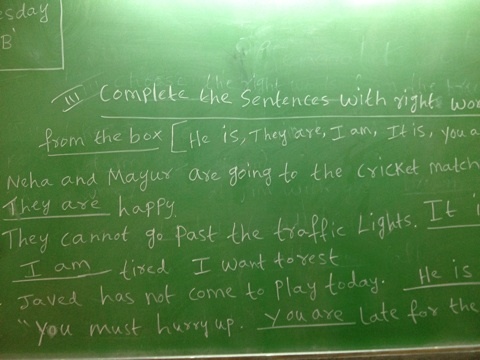 esday
B'
III Complete the Sentences with right
from the box [He is, They are, I am, It is, you
Neha and Mayur are going to the cricket match
They are happy.
They cannot go past the traffic Lights. It
I am tired I want to rest
Javed has not come to play today. He is
"You must hurry up. you are late for the